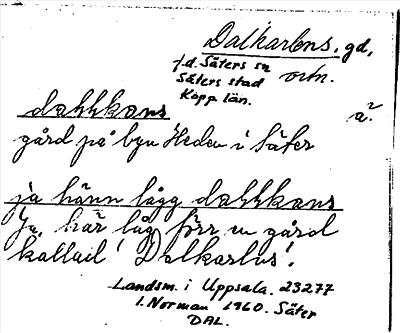 Dalkarlens, gd,
f.d. Säters sn
ortn.
Säters stad
Kopp. län.
dahkkans
a?
gård på byn Heden i Säter
ja hänn lågg dahkkans
Ja, här låg förr en gård
kallad 'Dalkarlus'.
Landsm. i Uppsala. 23277
I. Norman 1960. Säter
DAL.